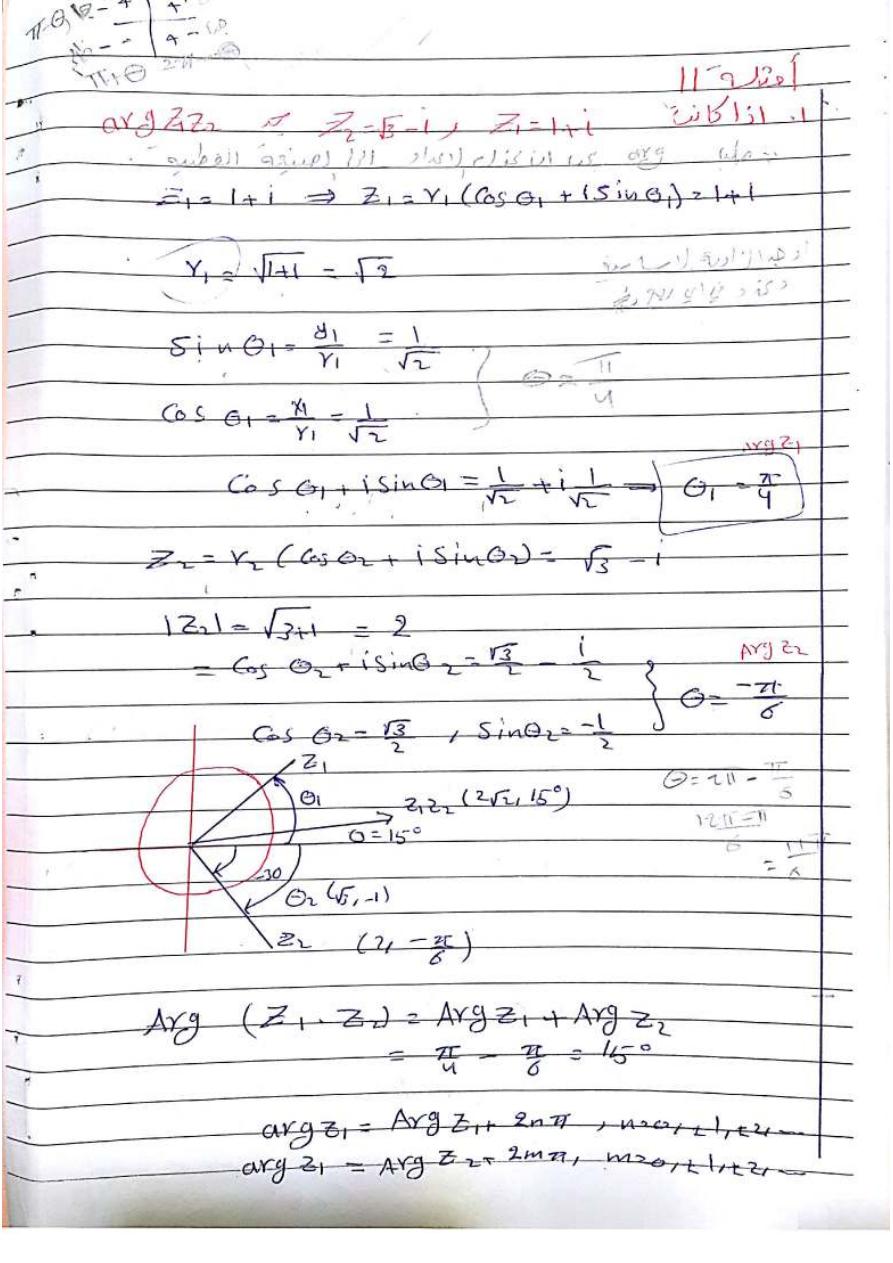 π-θ
π+θ 2π-θ
أمثلة 11
1. اذا كانت Z1=1+i , Z2=√3-i arg Z1Z2
arg
Z1 = 1+i ⇒ Z1 = r1 (Cos θ1 + i Sin θ1) = 1+i
r1 = √1+1 = √2
Sin θ1 = y1/r1 = 1/√2
θ = π/4
Cos θ1 = x1/r1 = 1/√2
Arg Z1
Cos θ1 + i Sin θ1 = 1/√2 + i 1/√2 ⇒ θ1 = π/4
Z2 = r2 (Cos θ2 + i Sin θ2) = √3 - i
|Z2| = √3+1 = 2
Arg Z2
= Cos θ2 + i Sin θ2 = √3/2 - i/2
θ = -π/6
Cos θ2 = √3/2 , Sin θ2 = -1/2
Z1
θ1
Z1Z2 (2√2, 15°)
θ = 15°
-30
θ2 (√3, -1)
Z2 (2, -π/6)
Arg (Z1 . Z2) = Arg Z1 + Arg Z2
= π/4 - π/6 = 15°
arg Z1 = Arg Z1 + 2nπ , n=0, ±1, ±2, ...
arg Z1 = Arg Z2 + 2mπ, m=0, ±1, ±2, ...